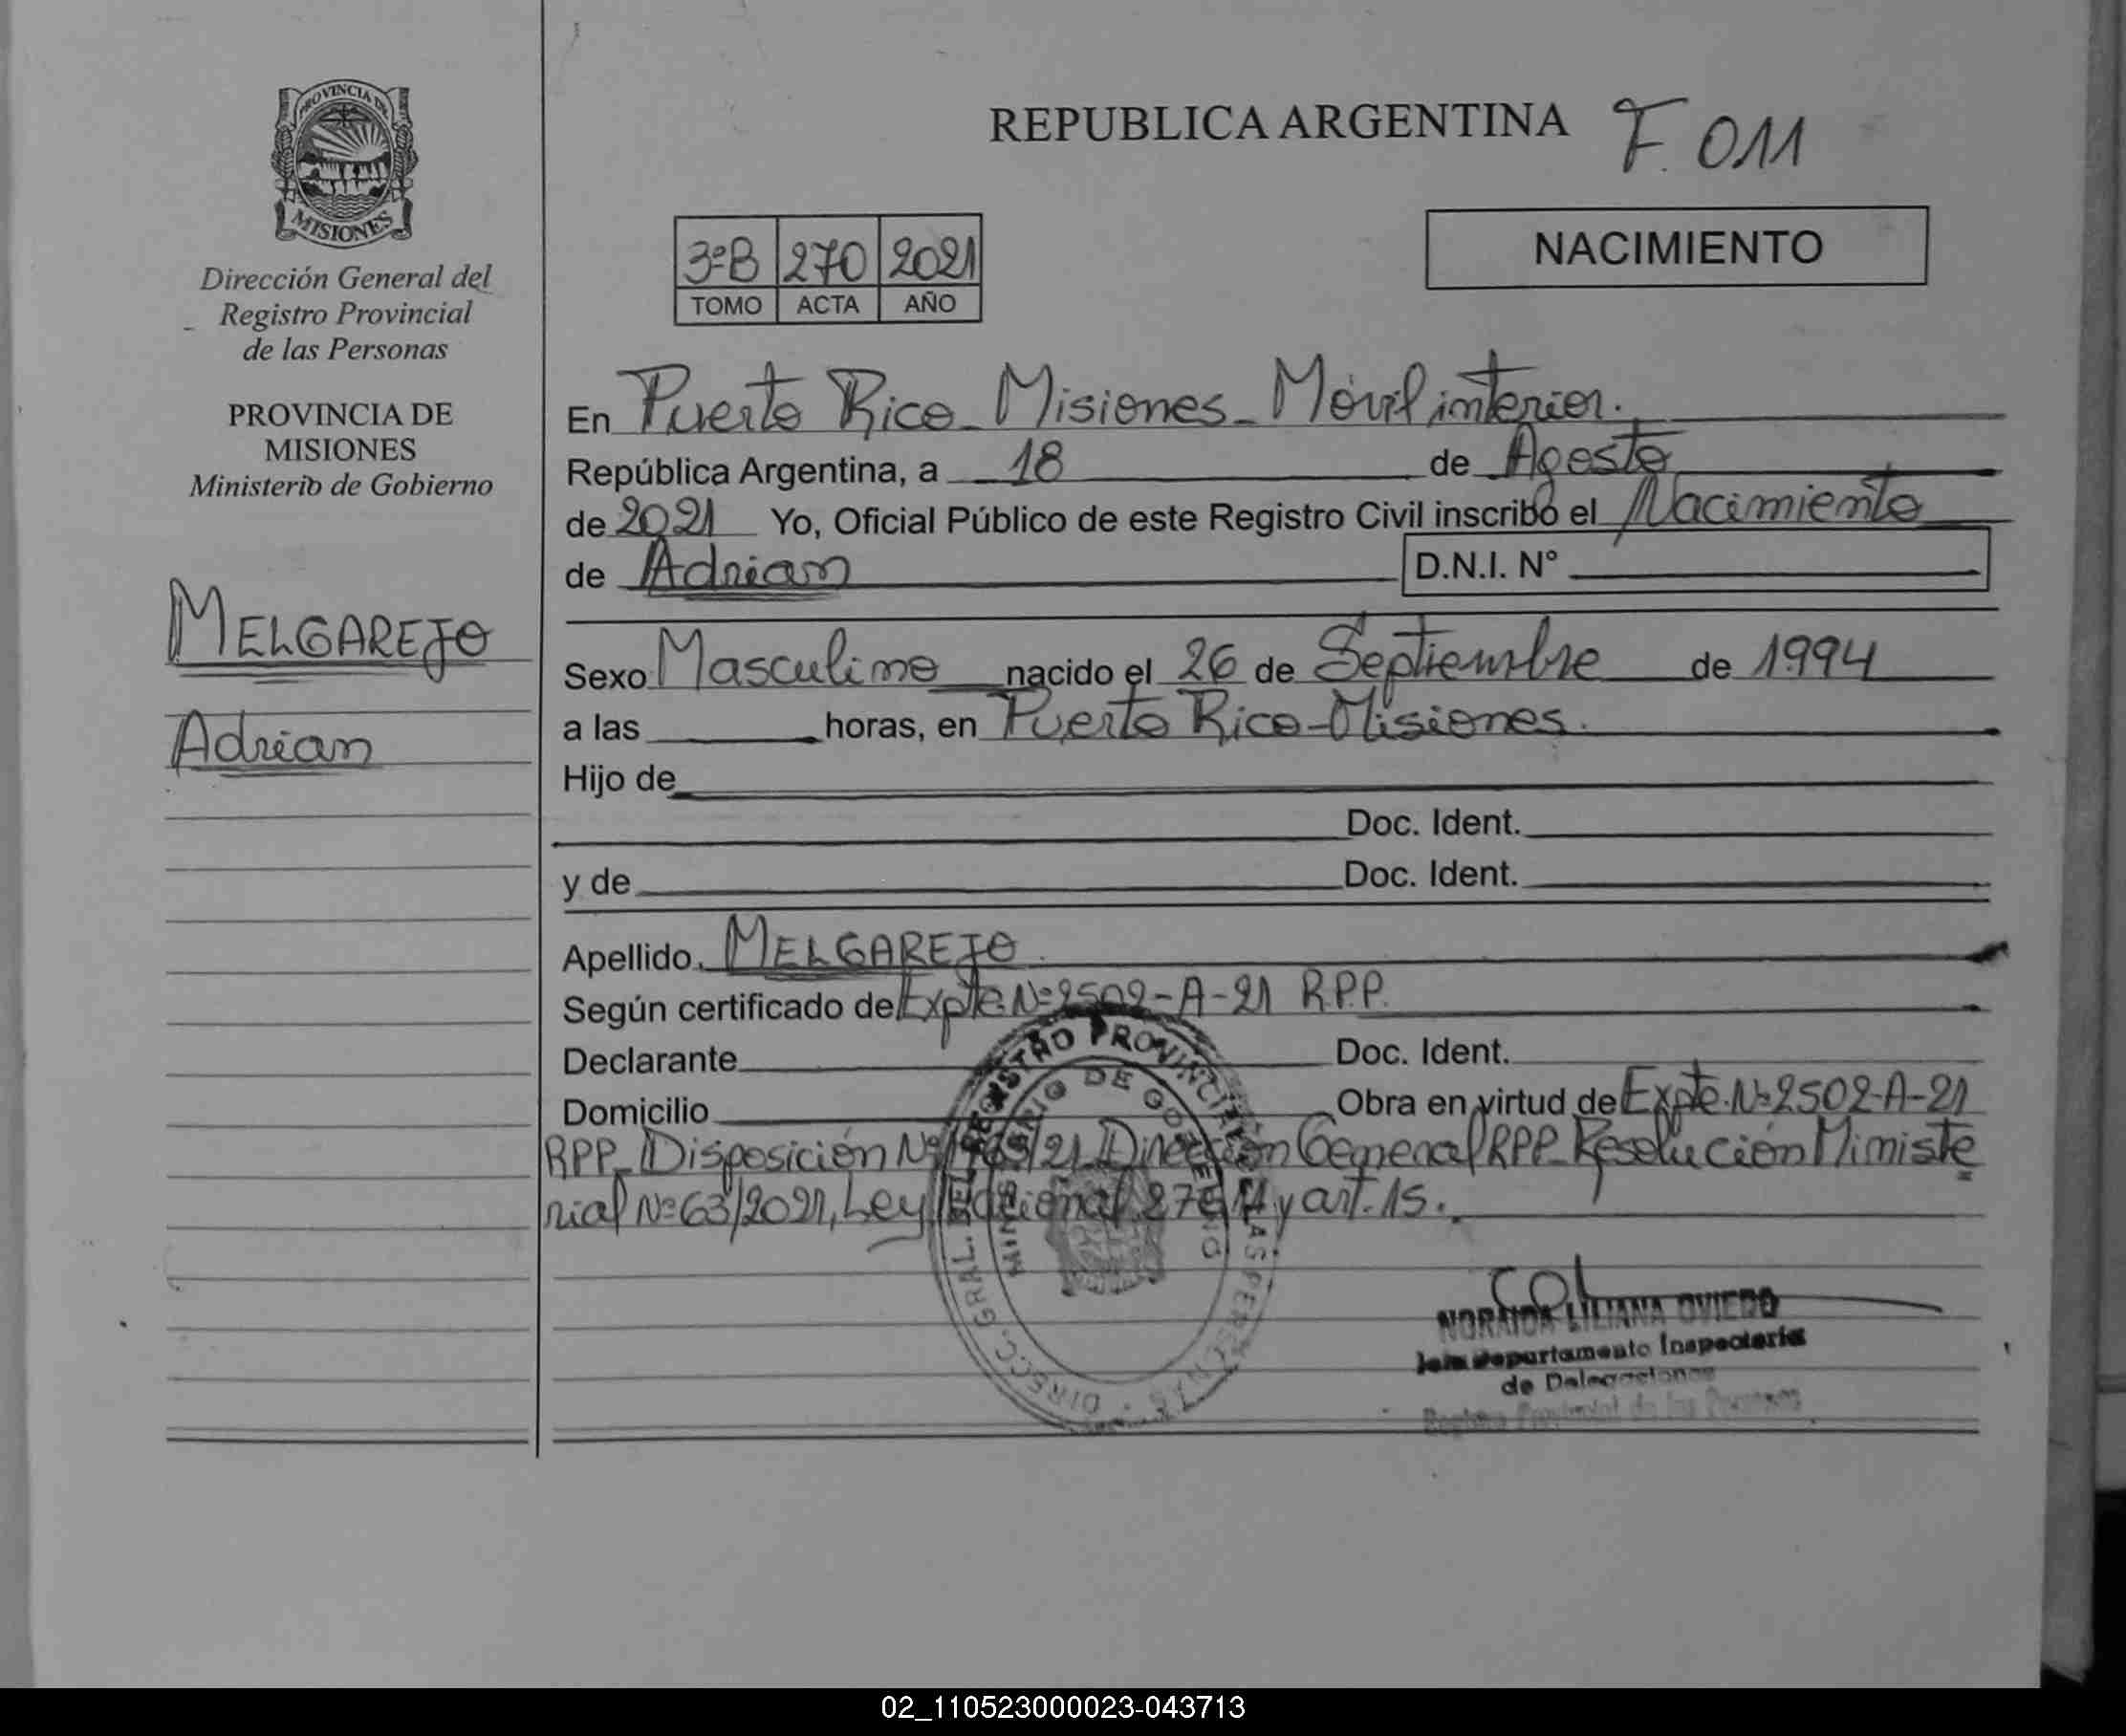 PROVINCIA DE
MISIONES
Dirección General del
Registro Provincial
de las Personas
PROVINCIA DE
MISIONES
Ministerio de Gobierno
MELGAREJO
Adrian
REPUBLICA ARGENTINA F. 011
3ºB 270 2021
TOMO ACTA AÑO
NACIMIENTO
En Puerto Rico - Misiones - Móvil interior.
República Argentina, a 18 de Agosto
de 2021 Yo, Oficial Público de este Registro Civil inscribo el Nacimiento
de Adrian D.N.I. Nº
Sexo Masculino nacido el 26 de Septiembre de 1994
a las horas, en Puerto Rico - Misiones.
Hijo de
Doc. Ident.
y de Doc. Ident.
Apellido MELGAREJO
Según certificado de Expte. Nº 2502-A-21 R.P.P.
Declarante Doc. Ident.
Domicilio Obra en virtud de Expte. Nº 2502-A-21
RPP - Disposición Nº /21 Dirección General RPP - Resolución Ministe
rial Nº 63/2021, Ley Nacional y art. 15.
DIRECC. GRAL. DEL REGISTRO PROVINCIAL DE LAS PERSONAS
MINISTERIO DE GOBIERNO
NORAIDA LILIANA OVIEDO
Jefa Departamento Inspectoria
de Delegaciones
Registro Provincial de las Personas
02_110523000023-043713